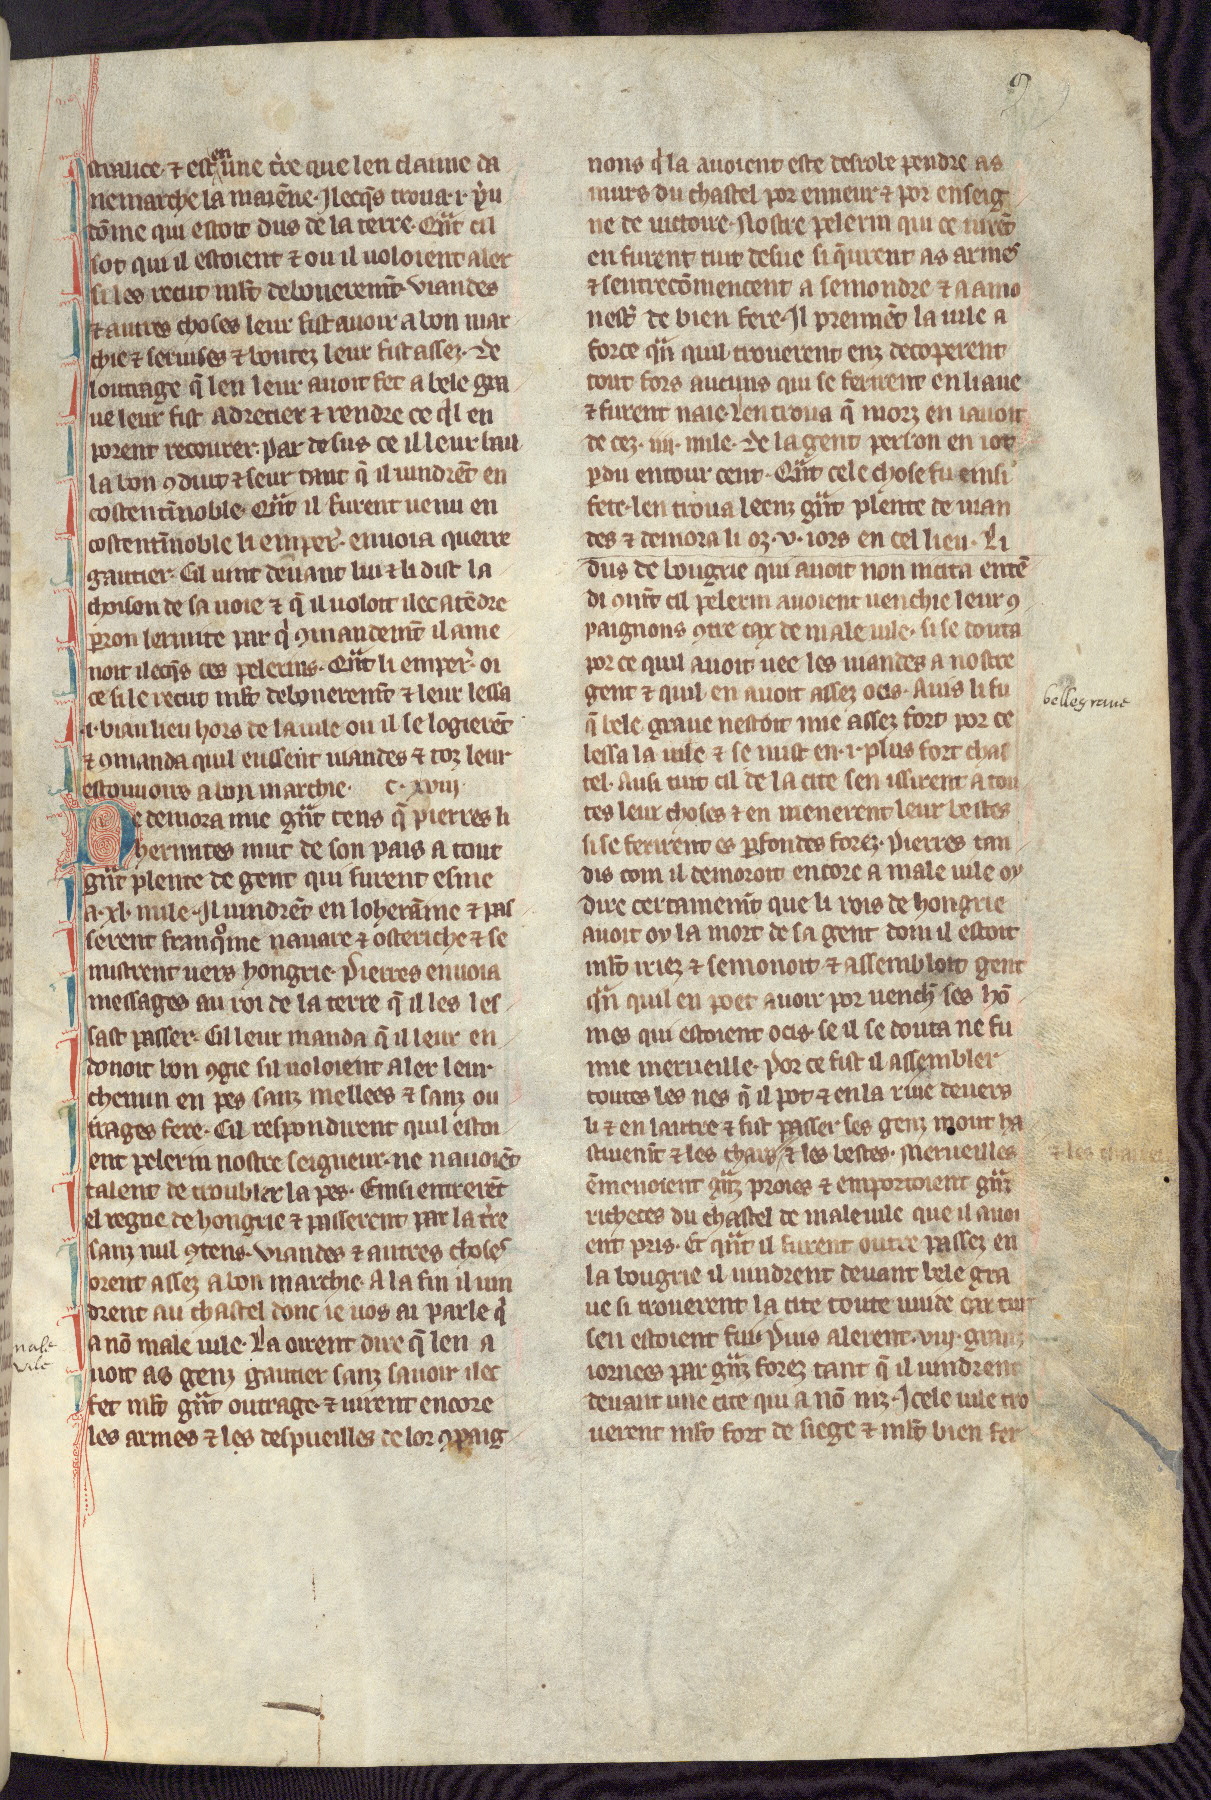 9
stralice · ⁊ est en une t̾re que len claime da
nemarche la maiẽne · Jlecq̃s troua · i · p̾u
dõme qui estoit dus de la terre · Q̃nt cil
sot qui il estoient ⁊ ou il uoloient aler
si les recut ml̃t debonerem̃t · Viandes
⁊ autres choses leur fist auoir a bon mar
chie ⁊ seruises ⁊ bontez leur fist assez · De
loutrage q̃ len leur auoit fet a bele gra
ue leur fist adrecier ⁊ rendre ce q̾l en
porent recourer · Par desus ce il leur bail
la bon ꝯduit ⁊ seur tant q̃ il uindrẽt en
costentĩnoble · Q̃nt il furent uenu en
costentĩnoble li emper̾ · enuoia querre
gautier · Cil uint deuant lui ⁊ li dist la
choison de sa uoie ⁊ q̃ il uoloit ilec atẽdre
perron lermite par q̾ ꝯmandem̃t il ame
noit ilecq̃s ces pelerins · Q̃nt li emper̾ · oi
ce si le recut ml̃t debonerem̃t ⁊ leur lessa
· i · biau lieu hors de la uile ou il se logierẽt
⁊ ꝯmanda quil eussent uiandes ⁊ toz leur
estouuoirs a bon marchie · C · xviij ·
Ne demora mie g̃nt tens q̃ pierres li
hermites mut de son pais a tout
g̃nt plente de gent qui furent esme
a · xl · mile · Jl uindrẽt en loherãine ⁊ pas
serent franq̊nie bauiere ⁊ osteriche ⁊ se
mistrent uers hongrie · Pierres enuoia
messages au roi de la terre q̃ il les les
sast passer · Cil leur manda q̃ il leur en
donoit bon ꝯgie sil uoloient aler leur
chemin en pes sanz mellees ⁊ sanz ou
trages fere · Cil respondirent quil estoi
ent pelerin nostre seigneur · ne nauoiẽt
talent de troubler la pes · Einsi entrerẽt
el regne de hongrie ⁊ passerent par la t̾re
sanz nul ꝯtens · Viandes ⁊ autres choses
orent assez a bon marchie · A la fin il uin
drent au chastel donc ie uos ai parle q̾
a nõ male uile · La oirent dire q̃ len a
uoit as genz gautier sanz sauoir ilec
fet ml̃t g̃nt outrage · ⁊ uirent encore
les armes ⁊ les despueilles de lor ꝯpaig
male
vile
nons q̾ la auoient este desrobe pendre as
murs du chastel por enneur ⁊ por enseig
ne de uictoire · Nostre pelerin qui ce uirẽt
en furent tuit desue si q̃urent as armes
⁊ sentrecõmencent a semondre ⁊ a amo
nest̾ de bien fere · Jl prennẽt la uile a
force q̃n quil trouerent enz decoperent
tout fors aucuns qui se ferirent en liaue
⁊ furent naie · Len troua q̃ morz en iauoit
de cez · iiij · mile · De la gent perron en iot
ꝑdu entour cent · Q̃nt cele chose fu einsi
fete · len troua leenz g̃nt plente de uian
des ⁊ demora li oz · v · iors en cel lieu · Li
dus de bougrie qui auoit non nicita entẽ
di ꝯm̃t cil pelerin auoient uenchie leur ꝯ
paignons ꝯtre cax de male uile · si se douta
por ce quil auoit uee les uiandes a nostre
gent ⁊ quil en auoit assez ocis · Auis li fu
q̃ bele graue nestoit mie assez fort por ce
lessa la uile ⁊ se mist en · i · plus fort chas
tel · Ausi tuit cil de la cite sen issirent a tou
tes leur choses ⁊ en menerent leur bestes
si se ferirent es ꝑfondes forez · Pierres tan
dis com il demoroit encore a male uile oy
dire certainem̃t que li rois de hongrie
auoit oy la mort de sa gent dom il estoit
ml̃t iriez ⁊ semonoit ⁊ assembloit gent
q̃n quil en poet auoir por uench̾ ses hõ
mes qui estoient ocis · se il se douta ne fu
mie merueille · Por ce fist il assembler
toutes les nes q̃ il pot ⁊ en la riue deuers
li ⁊ en lautre ⁊ fist passer ses genz mout ha
stiuem̃t ⁊ les chars ⁊ les bestes · Merueilles
ẽmenoient g̃nz proies ⁊ emportoient g̃nz
richeces du chastel de male uile que il auoi
ent pris · Et q̃nt il furent outre passez en
la bougrie il uindrent deuant bele gra
ue si trouerent la cite toute uuide car tuit
sen estoient fui · Puis alerent · viij · granz
iornees par g̃nz forez tant q̃ il uindrent
deuant une cite qui a nõ niz · Jcele uile tro
uerent ml̃t fort de siege ⁊ ml̃t bien fer
bellegraue